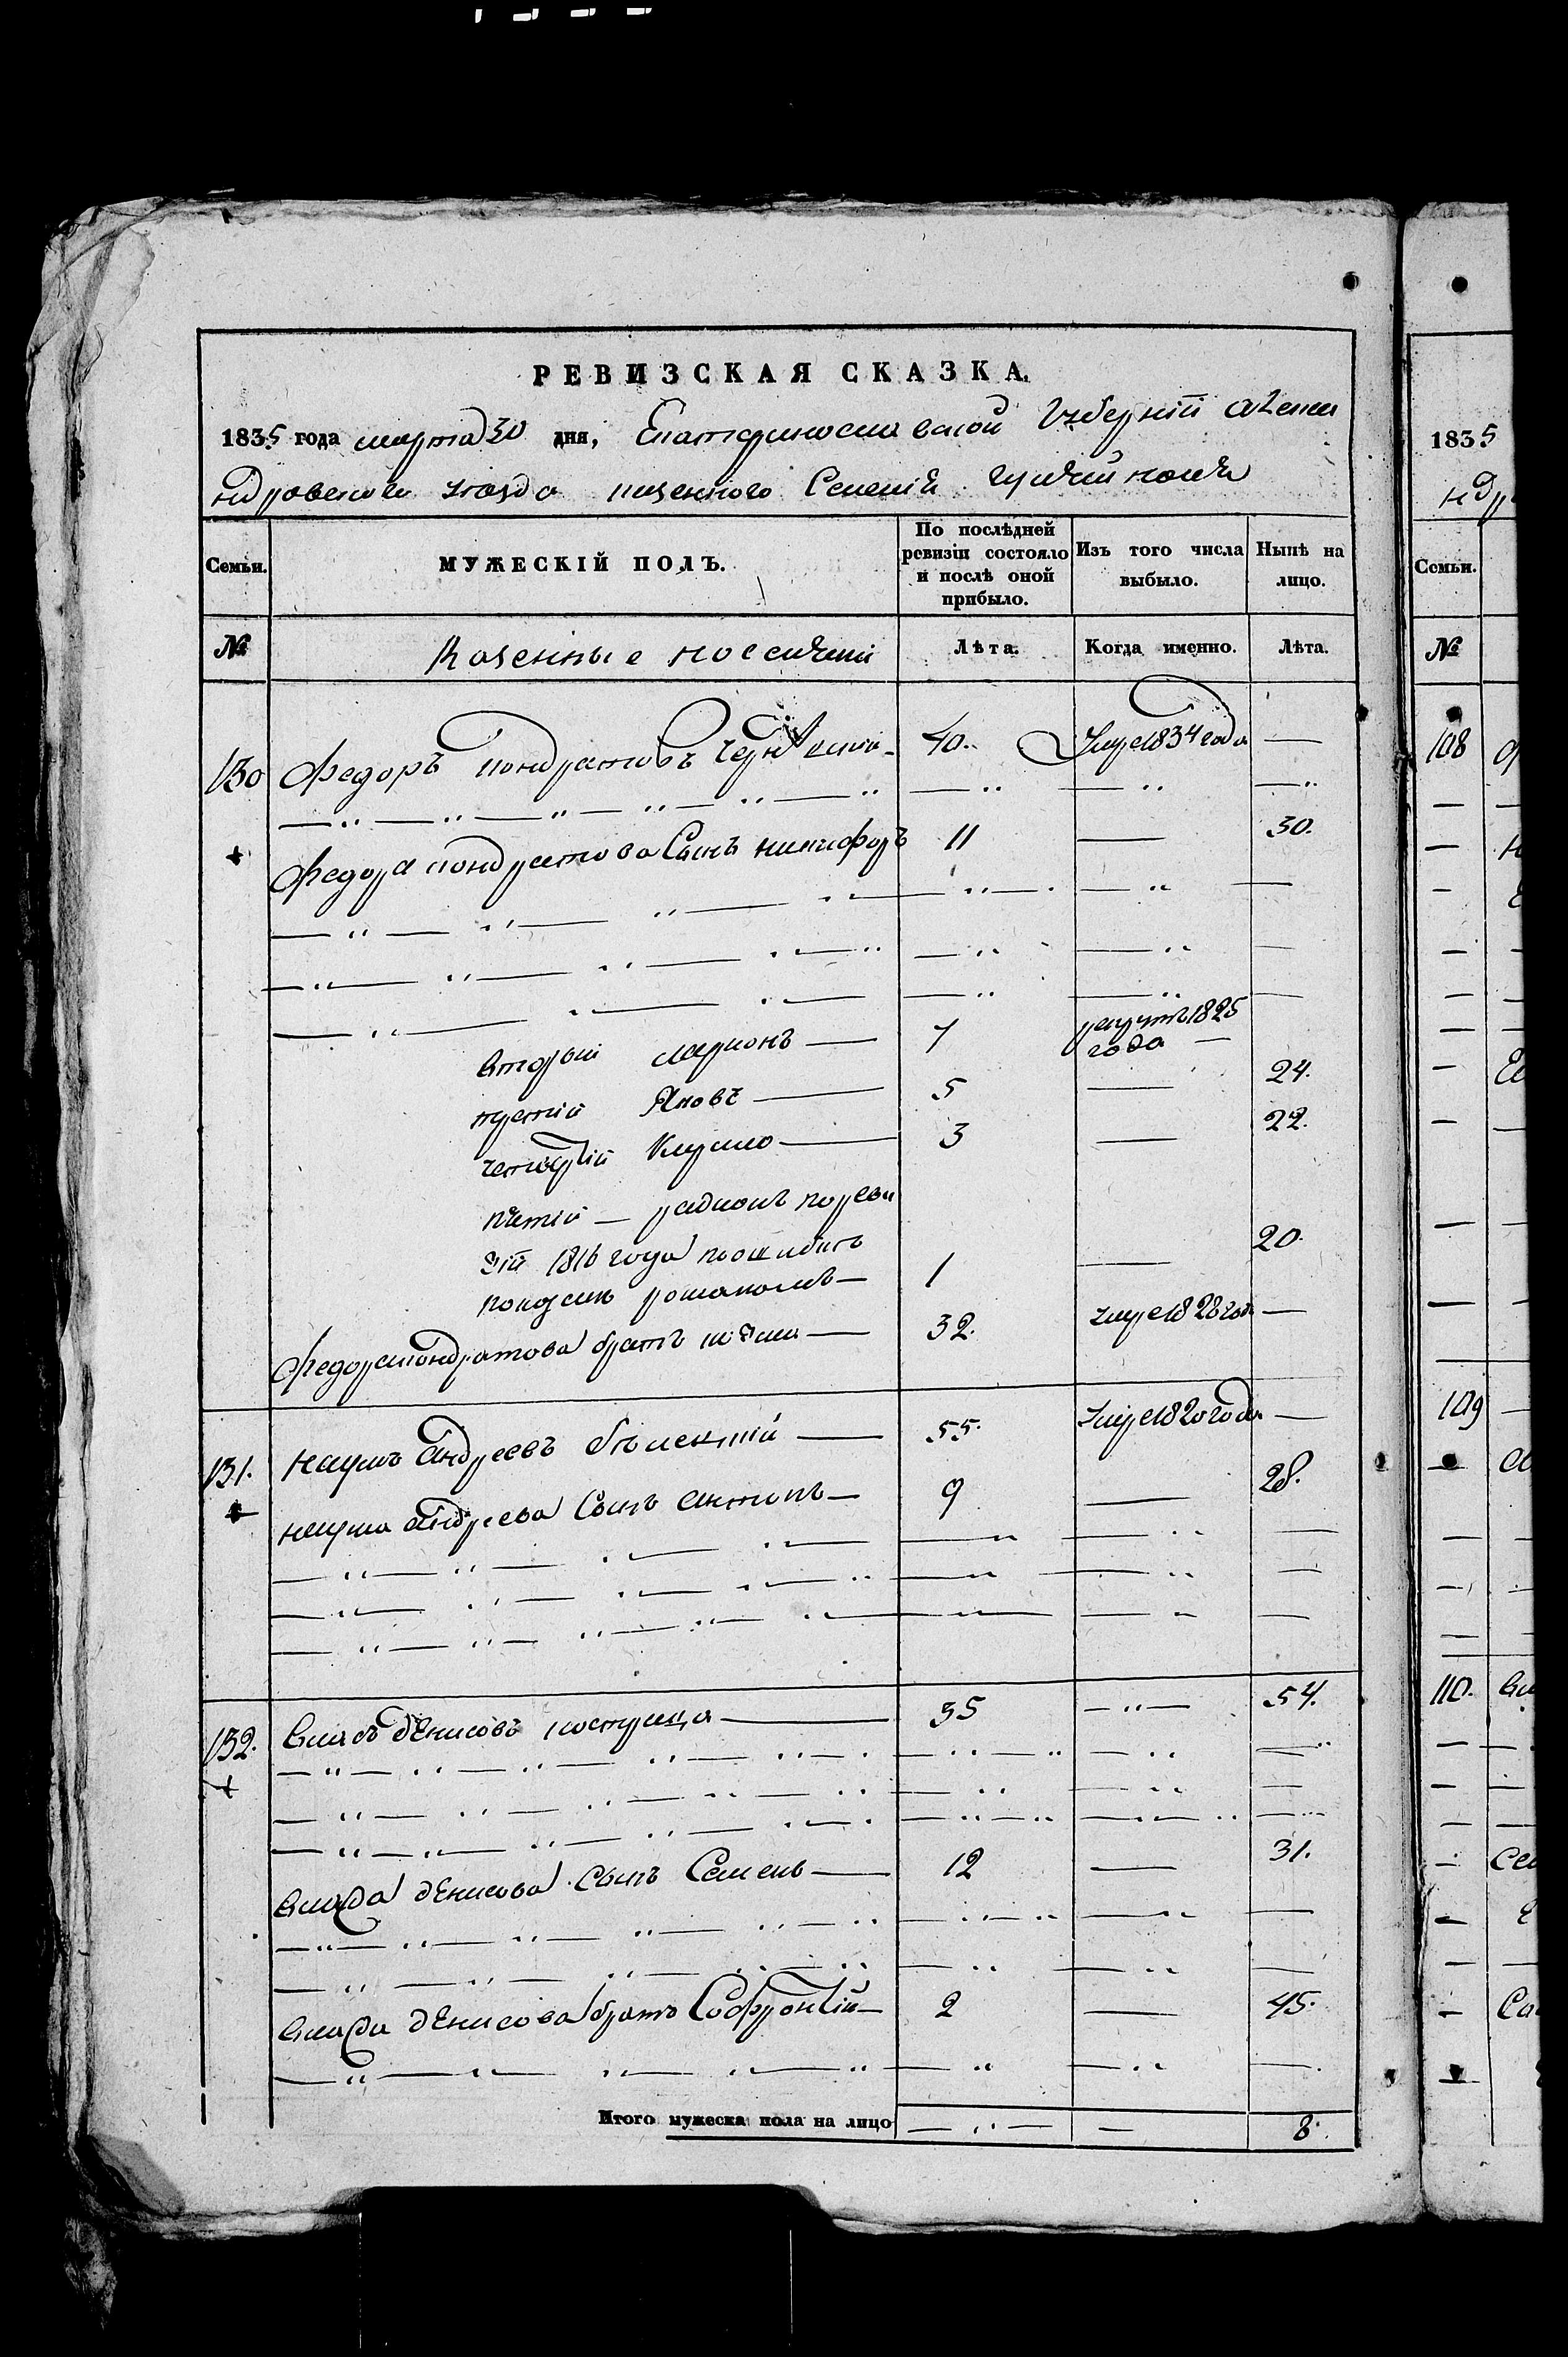 РЕВИЗСКАЯ СКАЗКА.
1835 года марта 30 дня, Екатеринославской Губерніи Алекса
ндровского уезда казенного Селенія
Семьи. МУЖЕСКІЙ ПОЛЪ. По послѣдней ревизіи состояло и послѣ оной прибыло. Изъ того числа выбыло. Нынѣ на лицо.
№ Казенные поселяни Лѣта. Когда именно. Лѣта.
130 Федоръ Кондратовъ 40. Умре 1834 года —
Федора Кондратова Сынъ Никифоръ 11 — 30.
вторый Ларионъ — 7 рекрутъ 1825 года —
третій Яковъ — 5 — 24.
четвертій Кирило — 3 — 22.
пятій — радионъ по реви
зіи 1816 года по ошибкѣ
показанъ романомъ — 1 — 20.
Федора Кондратова братъ — 32. умре 1828 года —
131. Наумъ Андреевъ — 55. Умре 1820 года —
Наума Андреева Сынъ Антонъ — 9 — 28.
132. Власъ Денисовъ — 35 — 54.
Власа Денисова Сынъ Семенъ — 12 — 31.
Власа Денисова братъ Софроній — 2 — 45.
Итого мужеска пола на лицо — — 8.
1835
ндр
Семьи.
№
108
109
110.